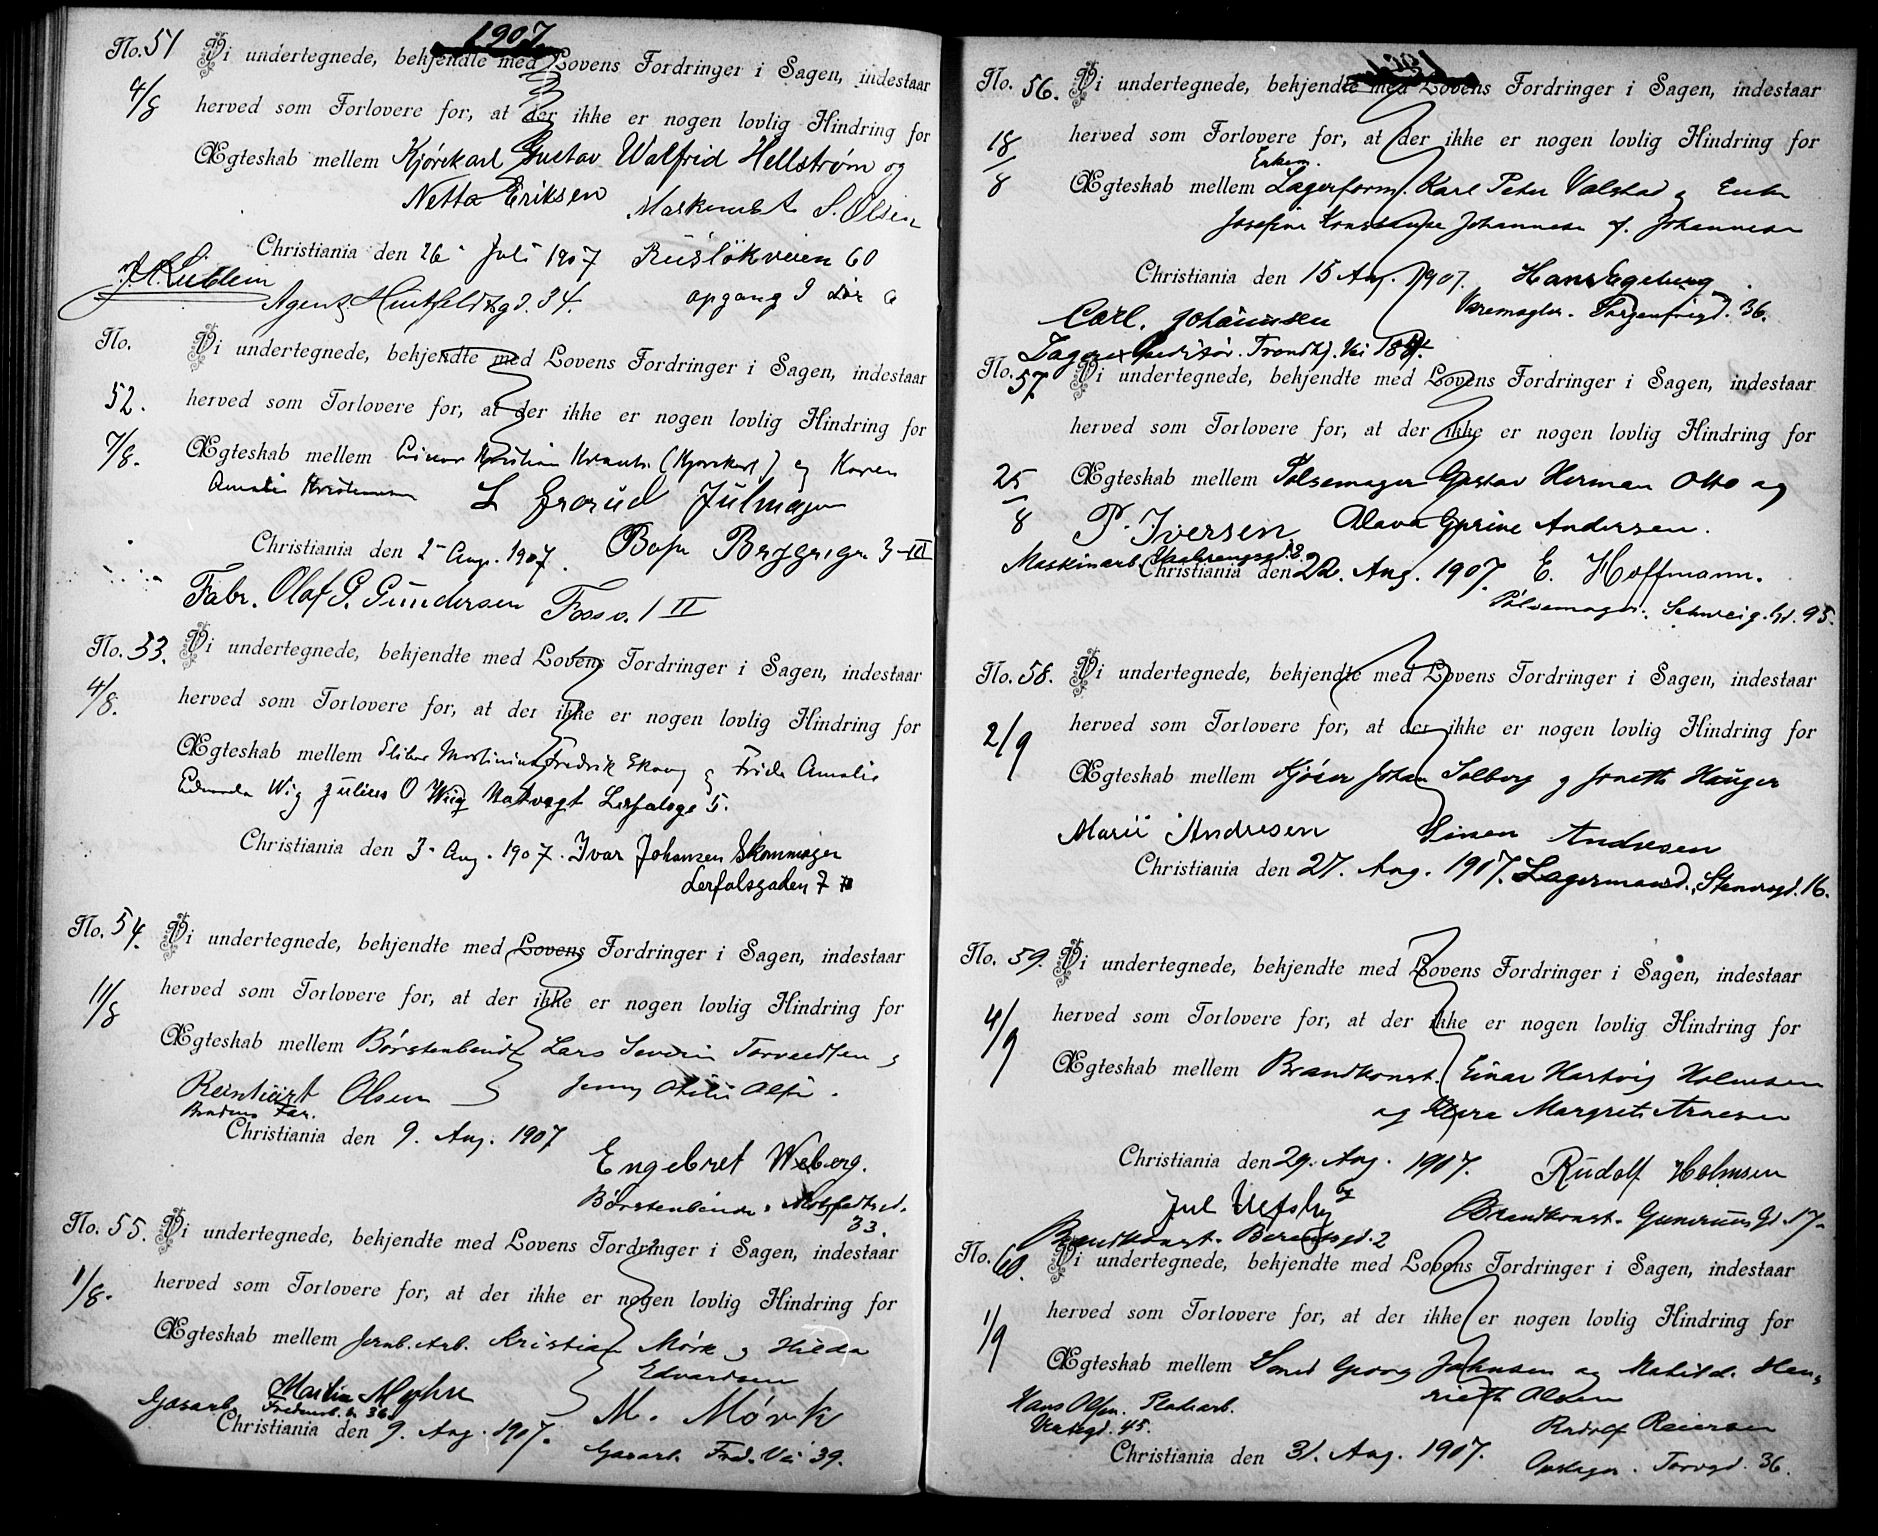 1907.
No. 51 Vi undertegnede, bekjendte med Lovens Fordringer i Sagen, indestaar
4/8 herved som Forlovere for, at der ikke er nogen lovlig Hindring for
Ægteskab mellem Kjørekarl Gustav Walfrid Hellstrøm og
Netta Eriksen S. Olsen
Christiania den 26 Juli 1907 Rusløkveien 60
Agent. Huitfeldtsgd. 34. opgang 9
No. Vi undertegnede, bekjendte med Lovens Fordringer i Sagen, indestaar
52. herved som Forlovere for, at der ikke er nogen lovlig Hindring for
7/8. Ægteskab mellem Kristian (Kjørekarl) og Karen
Amalie Kristensen
Christiania den 2 Aug. 1907.
Fabr. Olaf G. Gundersen Fossv. 1 II
No. 53. Vi undertegnede, bekjendte med Lovens Fordringer i Sagen, indestaar
4/8. herved som Forlovere for, at der ikke er nogen lovlig Hindring for
Ægteskab mellem Sliber Martinius Fredrik Skaug og Frida Amalie
Wig Julius O Wiig Natvagt Lerfalsge 5.
Christiania den 3 Aug. 1907. Ivar Johansen Skommager
Lerfalsgaden 7
No. 54. Vi undertegnede, bekjendte med Lovens Fordringer i Sagen, indestaar
11/8 herved som Forlovere for, at der ikke er nogen lovlig Hindring for
Ægteskab mellem Børstenbinder Lars Severin Torvaldsen og
Reinhart Olsen Jenny Otilie Olsen.
Christiania den 9. Aug. 1907
Engebret Weberg.
Børstenbinder.
33.
No. 55. Vi undertegnede, bekjendte med Lovens Fordringer i Sagen, indestaar
1/8. herved som Forlovere for, at der ikke er nogen lovlig Hindring for
Ægteskab mellem Jernb. Arb. Kristian Mørk og Hilda
Edvardsen
Gasarb. Martin Myhre M. Mørk
Christiania den 9. Aug. 1907. Gasarb. Fred. Vei 39.
No. 56. Vi undertegnede, bekjendte med Lovens Fordringer i Sagen, indestaar
18/8 herved som Forlovere for, at der ikke er nogen lovlig Hindring for
Enkem.
Ægteskab mellem Lagerform. Karl Peter Valstad og Enke
Josefine Johannesen f. Johannesen
Christiania den 15 Aug. 1907. Hans Egeberg
Carl. Johannsen Varemægler. Sorgenfrigd. 36.
Lagerexpeditør. Trondhj. Vei
No. 57. Vi undertegnede, bekjendte med Lovens Fordringer i Sagen, indestaar
herved som Forlovere for, at der ikke er nogen lovlig Hindring for
25/8 Ægteskab mellem Pølsemager Gustav Herman Otto og
P. Iversen. Olava Gurine Andersen.
Maskinarb.
Christiania den 22. Aug. 1907. E. Hoffmann.
Pølsemager. Schweig. Gd. 95.
No. 58. Vi undertegnede, bekjendte med Lovens Fordringer i Sagen, indestaar
2/9 herved som Forlovere for, at der ikke er nogen lovlig Hindring for
Ægteskab mellem Kjører Johan Solberg og Hauger
Marie Andresen Simen Andresen
Christiania den 27. Aug. 1907. Lagermand. Stenersgd. 16.
No. 59. Vi undertegnede, bekjendte med Lovens Fordringer i Sagen, indestaar
4/9 herved som Forlovere for, at der ikke er nogen lovlig Hindring for
Ægteskab mellem Brandkonst. Einar Hartvig Holmsen
og Klara Margrete Arnesen
Christiania den 29. Aug. 1907. Rudolf Holmsen
Jul Ulfsby Brandkonst. Gd. 17.
Brandkonst. 2
No. 60. Vi undertegnede, bekjendte med Lovens Fordringer i Sagen, indestaar
herved som Forlovere for, at der ikke er nogen lovlig Hindring for
1/9 Ægteskab mellem Smed Georg Johnsen og Matilde Hen-
riette Olsen
Hans Olsen. Pladsarb. Rudolf Reiersen
45.
Christiania den 31. Aug. 1907. Opslager. Torvgd. 36.